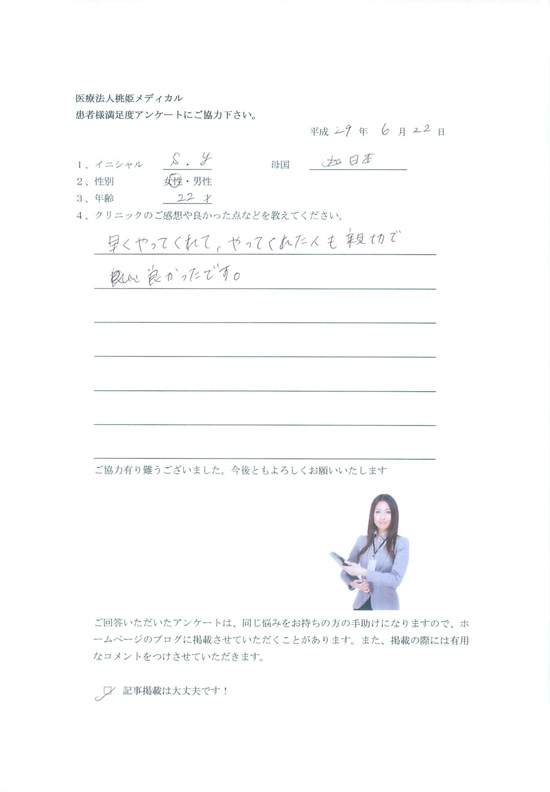 医療法人桃姫メディカル
患者様満足度アンケートにご協力下さい。
平成 29 年 6 月 22 日
1、イニシャル S.Y 母国 日本
2、性別 女性・男性
3、年齢 22才
4、クリニックのご感想や良かった点などを教えてください。
早くやってくれて、やってくれた人も親切で
良かったです。
ご協力有り難うございました。今後ともよろしくお願いいたします
ご回答いただいたアンケートは、同じ悩みをお持ちの方の手助けになりますので、ホ
ームページのブログに掲載させていただくことがあります。また、掲載の際には有用
なコメントをつけさせていただきます。
□ 記事掲載は大丈夫です！